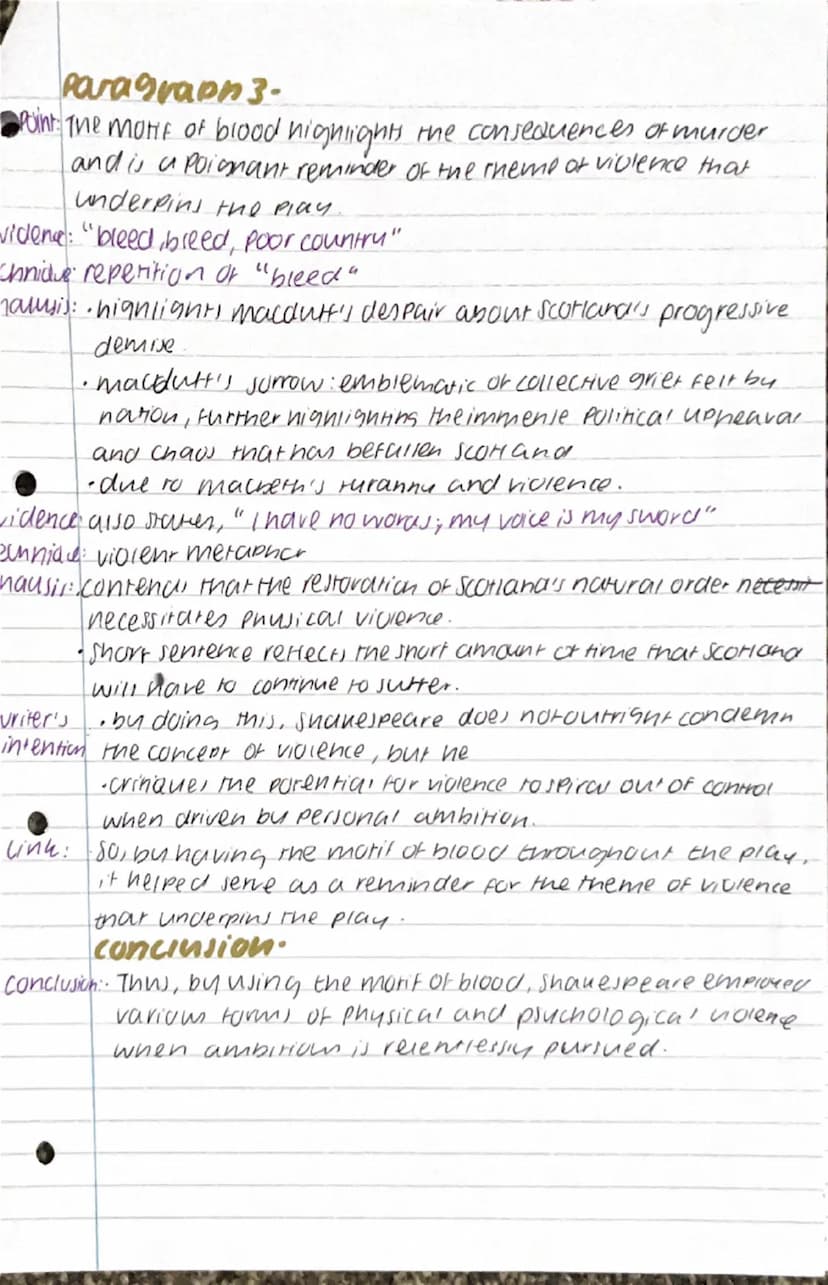 Paragraph 3-
Point: The motif of blood highlights the consequences of murder
and is a poignant reminder of the theme of violence that
underpins the play.
vidence: "bleed, bleed, poor country"
chnique: repetition of "bleed"
nalysis: · highlights macduff's despair about Scotland's progressive
demise.
· macduff's sorrow: emblematic of collective grief felt by
nation, further highlighting the immense political upheaval
and chaos that has befallen Scotland
· due to macbeth's tyranny and violence.
vidence: also states, "I have no words; my voice is my sword"
echnique: violent metaphor
nalysis: contends that the restoration of Scotland's natural order necessit
necessitates physical violence.
· Short sentence reflects the short amount of time that Scotland
will have to continue to suffer.
writer's · by doing this, Shakespeare does not outright condemn
intention the concept of violence, but he
· critiques the potential for violence to spiral out of control
when driven by personal ambition.
Link: So, by having the motif of blood throughout the play,
it helped serve as a reminder for the theme of violence
that underpins the play.
Conclusion-
Conclusion: · Thus, by using the motif of blood, Shakespeare employed
various forms of physical and psychological violence
when ambition is relentlessly pursued.